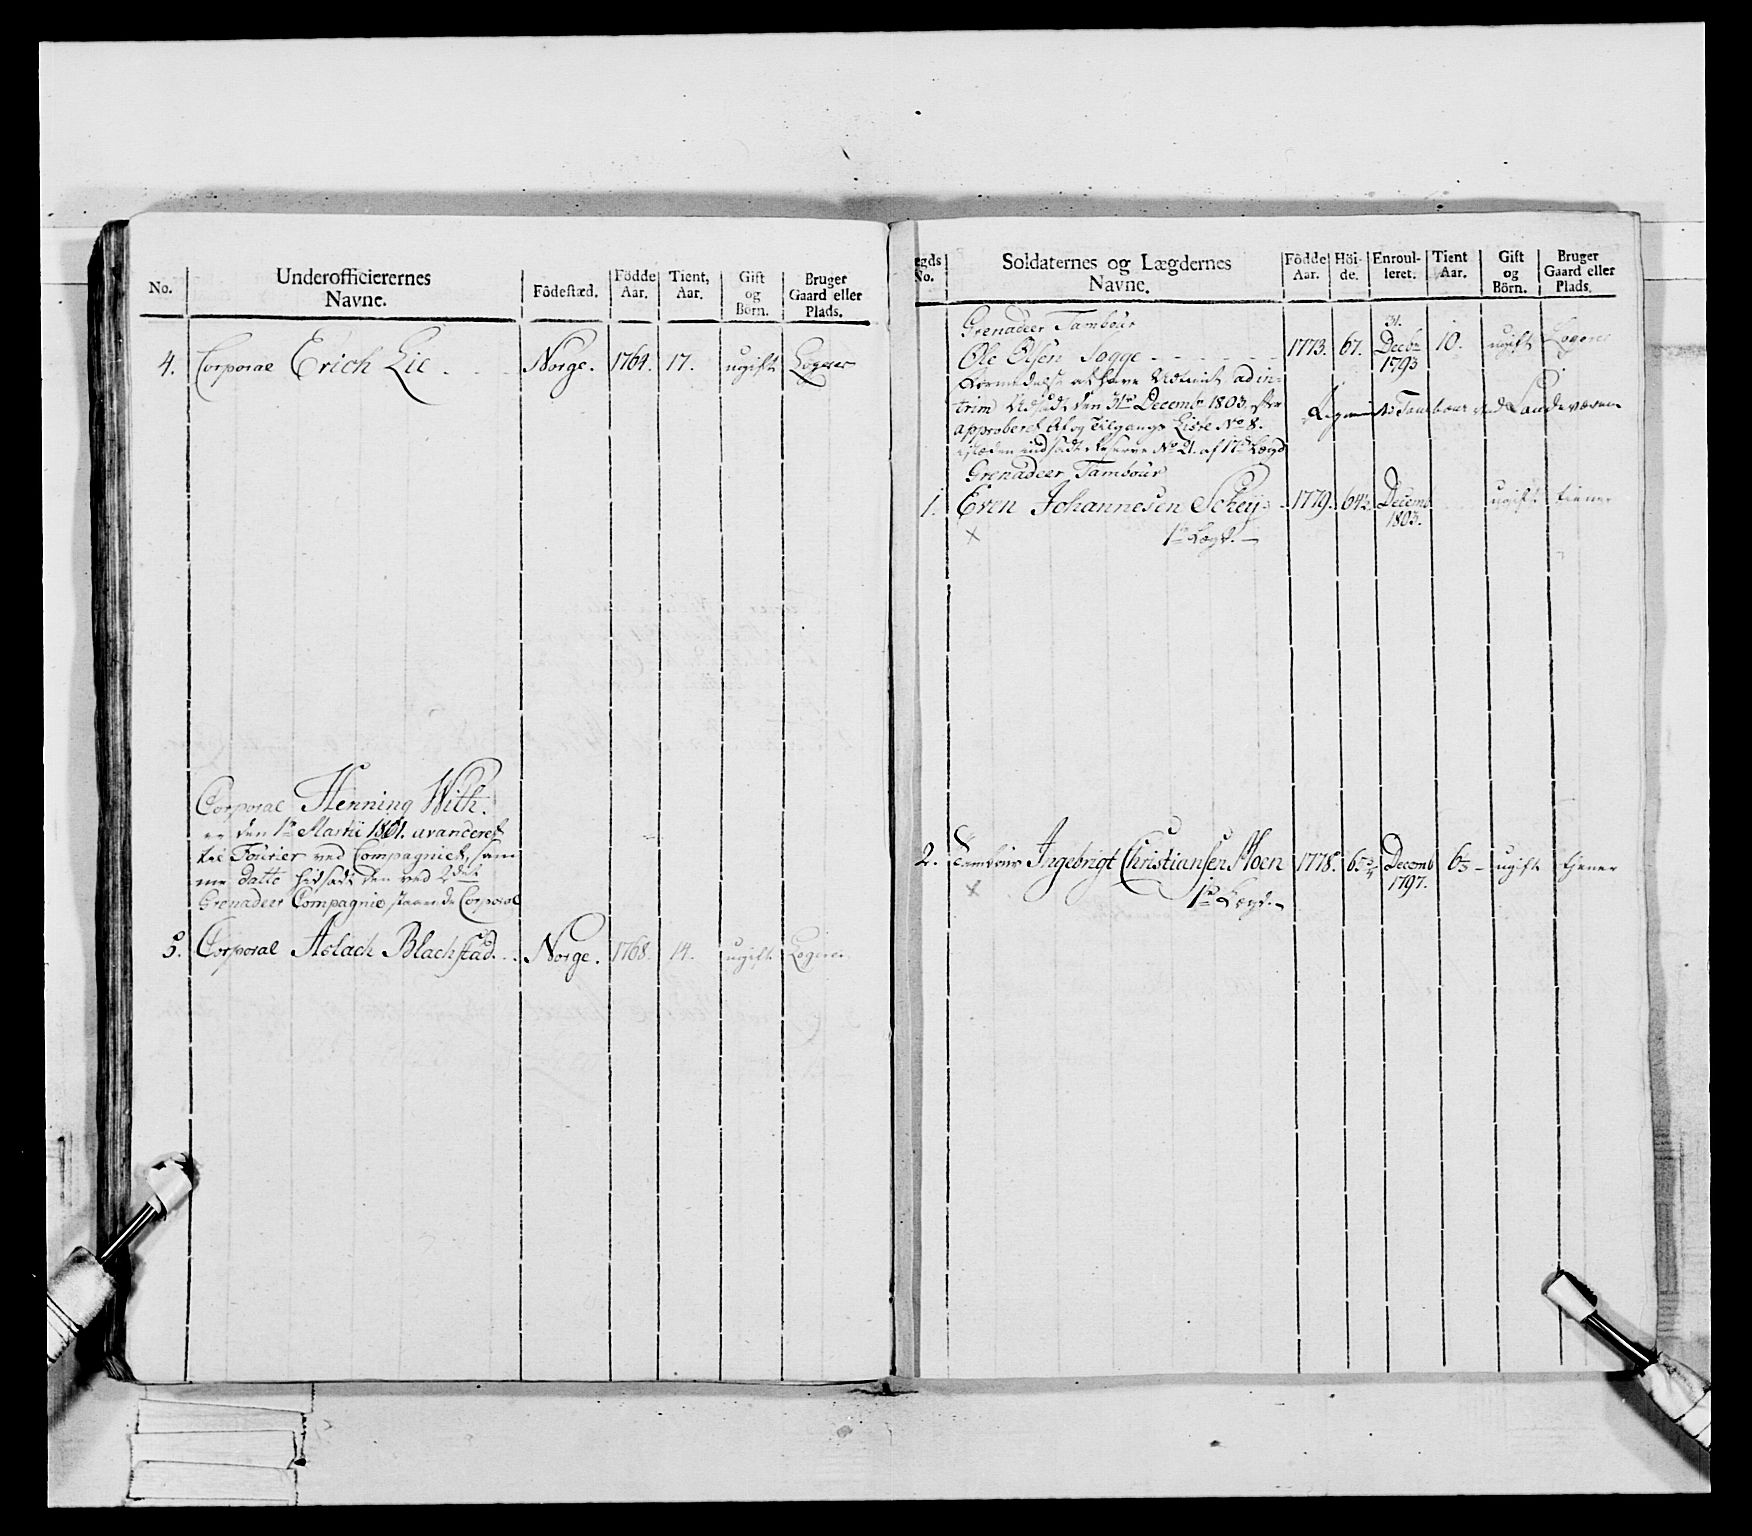 No.
Underofficierernes
Navne.
Födestæd.
Födde
Aar.
Tient,
Aar.
Gift
og
Börn.
Bruger
Gaard eller
Plads.
4. Corporal Erich Lie . . . Norge. 1764. 17. ugift Logerer
Corporal Henning With.
er den 1te Martii 1801. avanceret
til Fourier ved Compagniet, sam
me datto hidsadt den ved 2det
Grenadeer Compagnie staaende Corporal
5. Corporal Aslach Blachstad . . Norge. 1768. 14. ugift Logerer
egds
No.
Soldaternes og Lægdernes
Navne.
Födde
Aar.
Höi-
de.
Enroul-
leret.
Tient
Aar.
Gift
og
Börn.
Bruger
Gaard eller
Plads.
Grenadeer Tambour
Ole Olsen Sogge - - - - - 1773. 67. 31. Decbr 1793 10. ugift Logerer
ad in-
trim Udsadt den 31te Decembr 1803, efter
approberet Af og Tilgangs Liste No 8.
indsadt Reserve No 21. af 17de Lægd
Tambour ved Landeværne
Grenadeer Tambour
1. Even Johannesen Schey. 1779. 64½. Decemb 1803. ugift tiener
x 1te Lægd. —
2. Tambour Ingebrigt Christiansen Moen 1778. Decemb 1797. 6 - ugift tjener
x 1te Lægd. -